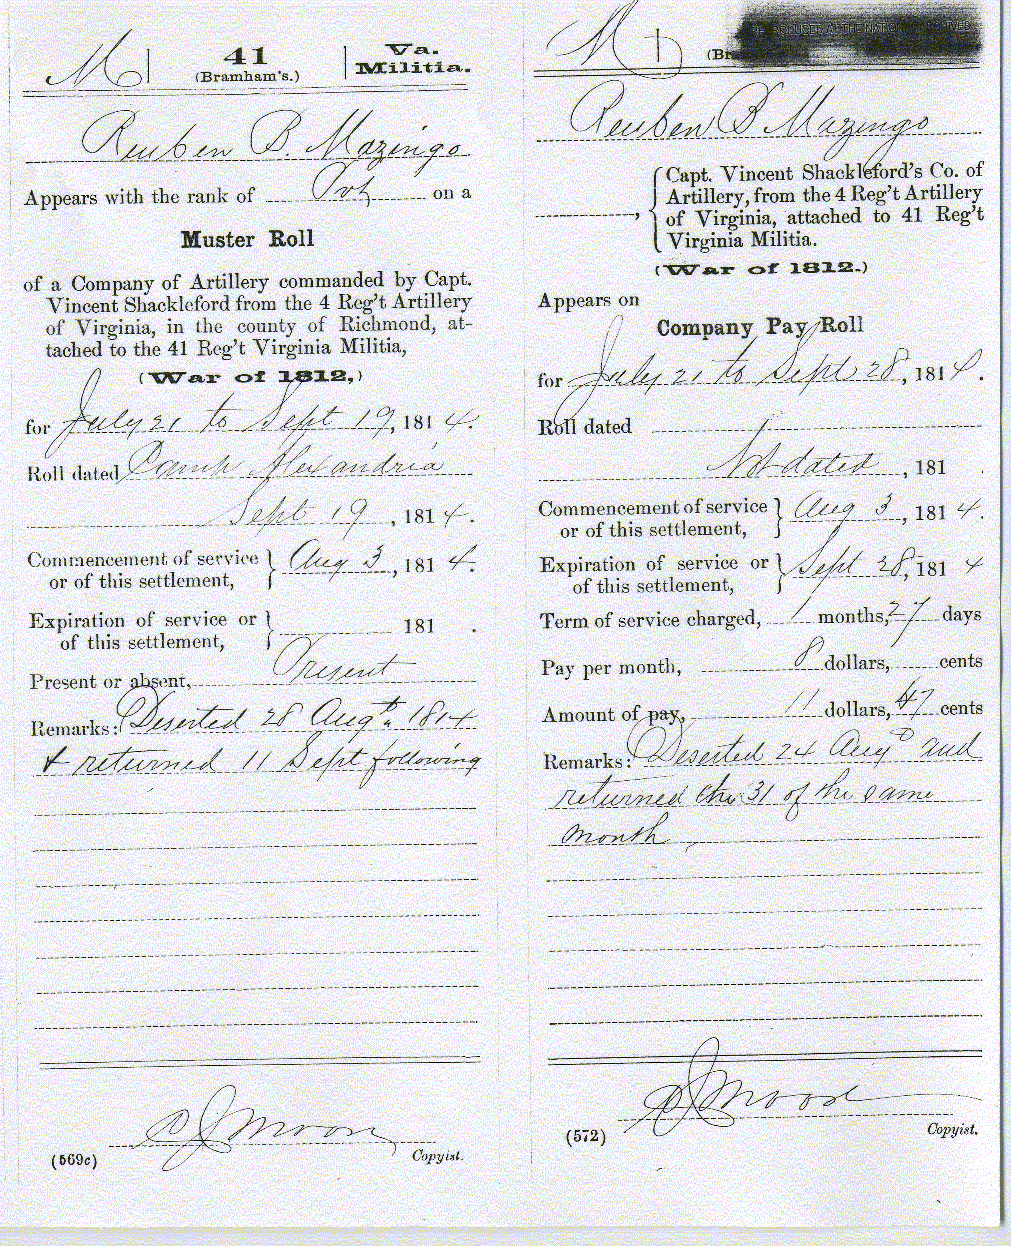 M
41
(Bramham's.)
Va.
Militia.
Reuben B. Mazingo
Appears with the rank of Pvt on a
Muster Roll
of a Company of Artillery commanded by Capt.
Vincent Shackleford from the 4 Reg't Artillery
of Virginia, in the county of Richmond, at-
tached to the 41 Reg't Virginia Militia,
(War of 1812,)
for July 21 to Sept 19, 1814.
Roll dated Camp Alexandria
Sept 19, 1814.
Commencement of service
or of this settlement, } Aug 3, 1814.
Expiration of service or
of this settlement, } 181 .
Present or absent, Present
Remarks: Deserted 28 Augt 1814
& returned 11 Sept following
(569c)
Copyist.
M
(Br
REPRODUCED AT THE NATIONAL ARCHIVES
Reuben B Mazingo
, { Capt. Vincent Shackleford's Co. of
Artillery, from the 4 Reg't Artillery
of Virginia, attached to 41 Reg't
Virginia Militia.
(War of 1812.)
Appears on
Company Pay Roll
for July 21 to Sept 28, 1814.
Roll dated
Not dated, 181 .
Commencement of service
or of this settlement, } Aug 3, 1814.
Expiration of service or
of this settlement, } Sept 28, 1814
Term of service charged, 1 months, 27 days
Pay per month, 8 dollars, cents
Amount of pay, 11 dollars, 47 cents
Remarks: Deserted 24 Aug and
returned the 31 of the same
month
(572)
Copyist.